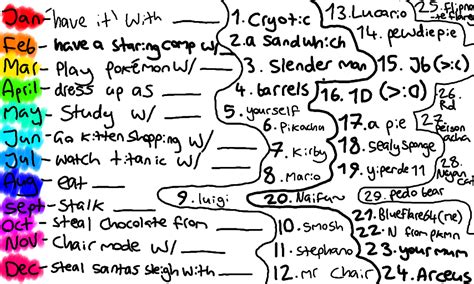 Jan- 'have it' with ____
Feb- have a staring comp w/___
Mar- Play pokémon w/ ____
April- dress up as ____
May- Study w/ ____
Jun- Go kitten shopping w/ ___
Jul- watch titanic w/ ____
Aug- eat ____
sept- Stalk ____
Oct- Steal chocolate from ____
Nov- Chair mode w/ ____
Dec- steal santas sleigh with ____
1. Cryotic
2. a Sandwhich
3. Slender man
4. barrels
5. yourself
6. Pikachu
7. Kirby
8. Mario
9. luigi
10. smosh
11. stephano
12. mr Chair
13. Lucario
14. pewdiepie
15. Jb (>:c)
16. 1D (>:O)
17. a pie
18. sealysponge
19. yipende11
20. Naifu
21. Blueflares(me)
22. N from pkmn
23. your mum
24. Arceus
25. Flipnote
26. Rd
27. person
28. Nyan Cat
29. pedo bear